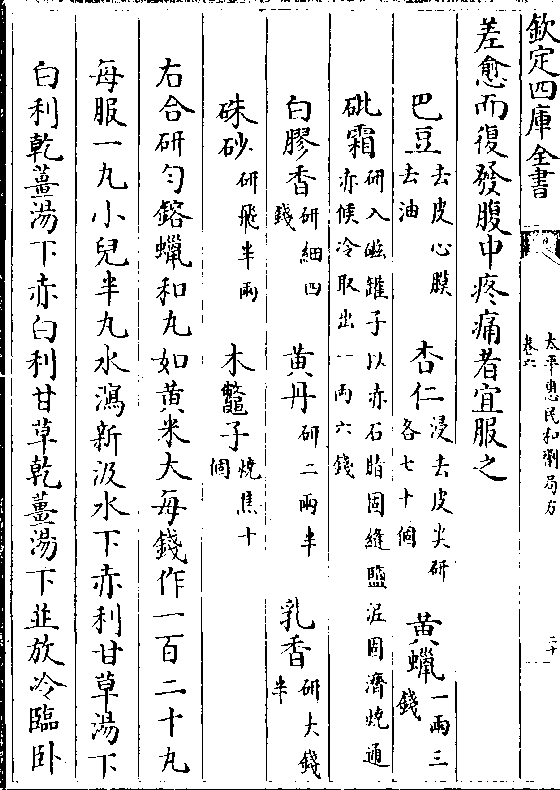 欽定四庫全書
太平惠民和劑局方
卷六
二十
差愈而復發腹中疼痛者宜服之
巴豆去皮心膜去油 杏仁浸去皮尖研各七十個 黃蠟一兩三錢
砒霜研入磁罐子以赤石脂固縫鹽泥固濟燒通赤候冷取出一兩六錢
白膠香研細四錢 黃丹研二兩半 乳香研六錢半
硃砂研飛半兩 木鼈子燒焦十個
右合研勻鎔蠟和丸如黃米大每錢作一百二十丸
每服一丸小兒半丸水瀉新汲水下赤利甘草湯下
白利乾薑湯下赤白利甘草乾薑湯下並放冷臨卧